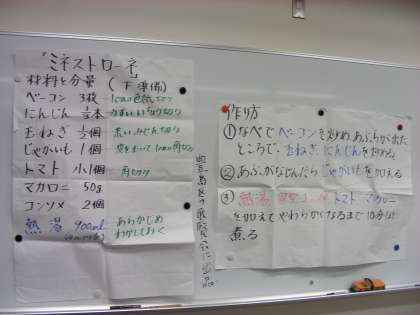 『ミネストローネ』
材料と分量 (下準備)
ベーコン 3枚 1cmの色紙切り
にんじん 1/2本 うすいいちょう切り
玉ねぎ 1/2個 あらいみじん切り
じゃがいも 1個 皮をむいて1cm角切り
トマト 小1個 角切り
マカロニ 50g
コンソメ 2個
熱湯 900ml あらかじめ
わかしておく
作り方
①なべでベーコンを炒め あぶらが出た
ところで、玉ねぎ、にんじんを炒める
②あぶらがなじんだら じゃがいもを加える
③熱湯 コンソメ トマト マカロニ
を加えてやわらかくなるまで10分ほど
煮る